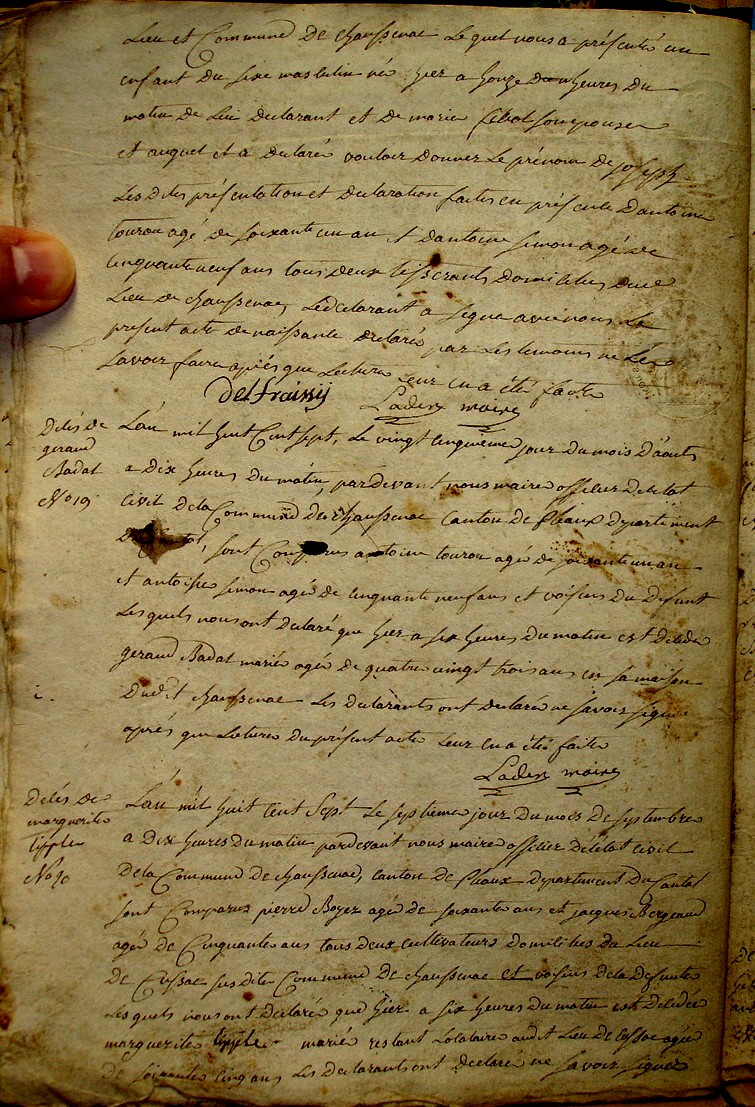 Lieu et Commune de chaussenac Lequel nous a présenté un
enfant du sexe masculin né hier a honze heures du
matin de Lui declarant et de marie son epouse
et auquel il a declaré vouloir donner Le prénom de joseph
Les dites présentation et declaration faites en présence d'antoine
tourou agé de soixante un an et d'antoine simon agé de
cinquante neuf ans tous deux tisserants domiciliés dudit
Lieu de chaussenac, Le declarant a signé avec nous Le
present acte de naissance declaré par Les temoins ne Le
savoir faire après que Lecture Leur en a été faite
delfraissÿ Laden maire
Délés de
geraud
Badal
No 19
L'an mil huit Cent sept, Le vingt cinquieme jour du mois d'août
a dix heures du matin, pardevant nous maire officier de letat
Civil de la Commune de chaussenac canton de Pleaux departement
sont Comparus antoine tourou agé de soixante un an
et antoine simon agé de cinquante neuf ans et voisins du defunt
Les quels nous ont declaré que hier a six heures du matin est décédé
geraud Badal marié agé de quatre vingt trois ans en sa maison
Dudit chaussenac Les declarants ont declaré ne savoir signer
après que Lecture du présent acte Leur en a été faite
Laden maire
Délés de
marguerite
tipple
No 20
L'an mil huit Cent Sept Le septieme jour du mois de septembre
a dix heures du matin pardevant nous maire officier de létat civil
de la Commune de chaussenac, canton de Pleaux departement du Cantal
sont Comparus pierre Boyer agé de soixante ans et jacques Bergeaud
agé de Cinquante ans tous deux cultivateurs domiciliés du Lieu
de Cussac susdite Commune de chaussenac et voisins de la defunte
Les quels nous ont declaré que hier a six heures du matin est décédée
marguerite tipple mariée restant Locataire audit Lieu de Cossac agée
de soixante cinq ans Les declarants ont declaré ne savoir signer